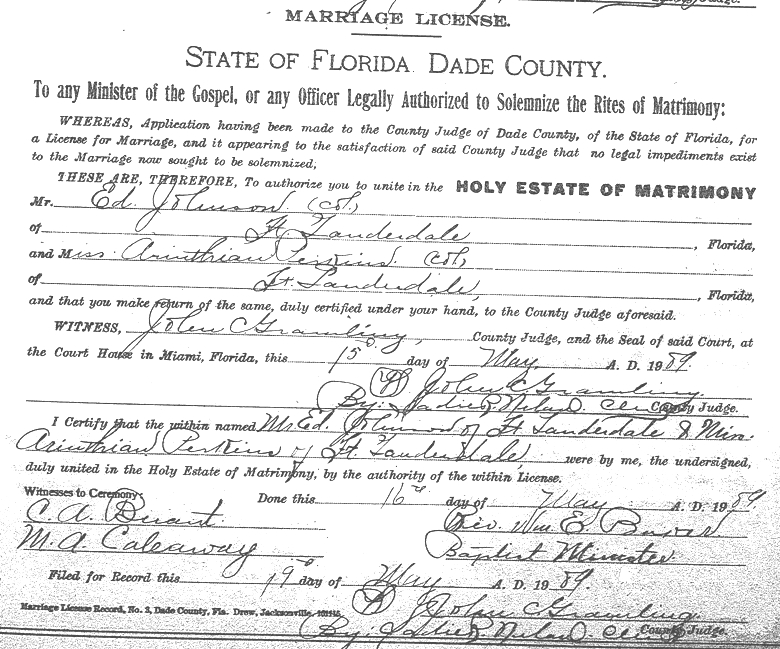 MARRIAGE LICENSE.
STATE OF FLORIDA DADE COUNTY.
To any Minister of the Gospel, or any Officer Legally Authorized to Solemnize the Rites of Matrimony:
WHEREAS, Application having been made to the County Judge of Dade County, of the State of Florida, for
a License for Marriage, and it appearing to the satisfaction of said County Judge that no legal impediments exist
to the Marriage now sought to be solemnized;
THESE ARE, THEREFORE, To authorize you to unite in the HOLY ESTATE OF MATRIMONY
Mr. Ed. Johnson (Col)
of Ft Lauderdale, Florida,
and Miss. Arinthian Perkins. Col,
of Ft. Lauderdale, Florida,
and that you make return of the same, duly certified under your hand, to the County Judge aforesaid.
WITNESS, John C Gramling, County Judge, and the Seal of said Court, at
the Court House in Miami, Florida, this 15 day of May. A. D. 1909.
John C Gramling.
By: County Judge.
I Certify that the within named Mr Ed. Johnson of Ft Lauderdale & Miss.
Arinthian Perkins of Ft Lauderdale, were by me, the undersigned,
duly united in the Holy Estate of Matrimony, by the authority of the within License.
Witnesses to Ceremony Done this 16 day of May A. D. 1909.
C. A. Rev. Wm E.
M. A. Caleaway Baptist Minister
Filed for Record this 19 day of May A. D. 1909.
John C Gramling
Marriage License Record, No. 3, Dade County, Fla. Drew, Jacksonville,
By: County Judge.